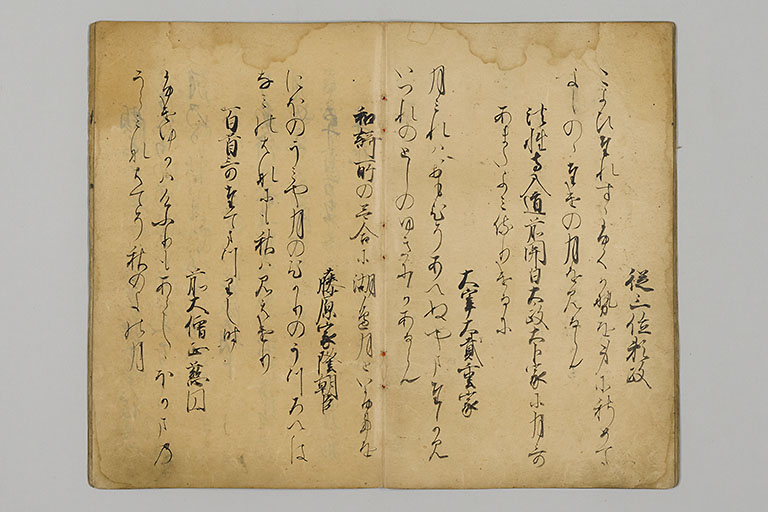 従三位頼政
こよひたれすゝふく風を身に秋めて
よしのゝたけの月を見るらん
法性寺入道前関白太政大臣家に月哥
あまたよみ侍りけるに
大宰大貳重家
月みれはおもひそあへぬやまたかみ
いつれのとしのゆきにかあるらん
和謌所の哥合に湖邊月といふ事を
藤原家隆朝臣
にほのうみや月のひかりのうつろへは
なみのはなにも秋は見えけり
百首哥たてまつりし時
前大僧正慈円
ふけゆかはけふりもあらししほかまの
うらみなはてそ秋のよの月